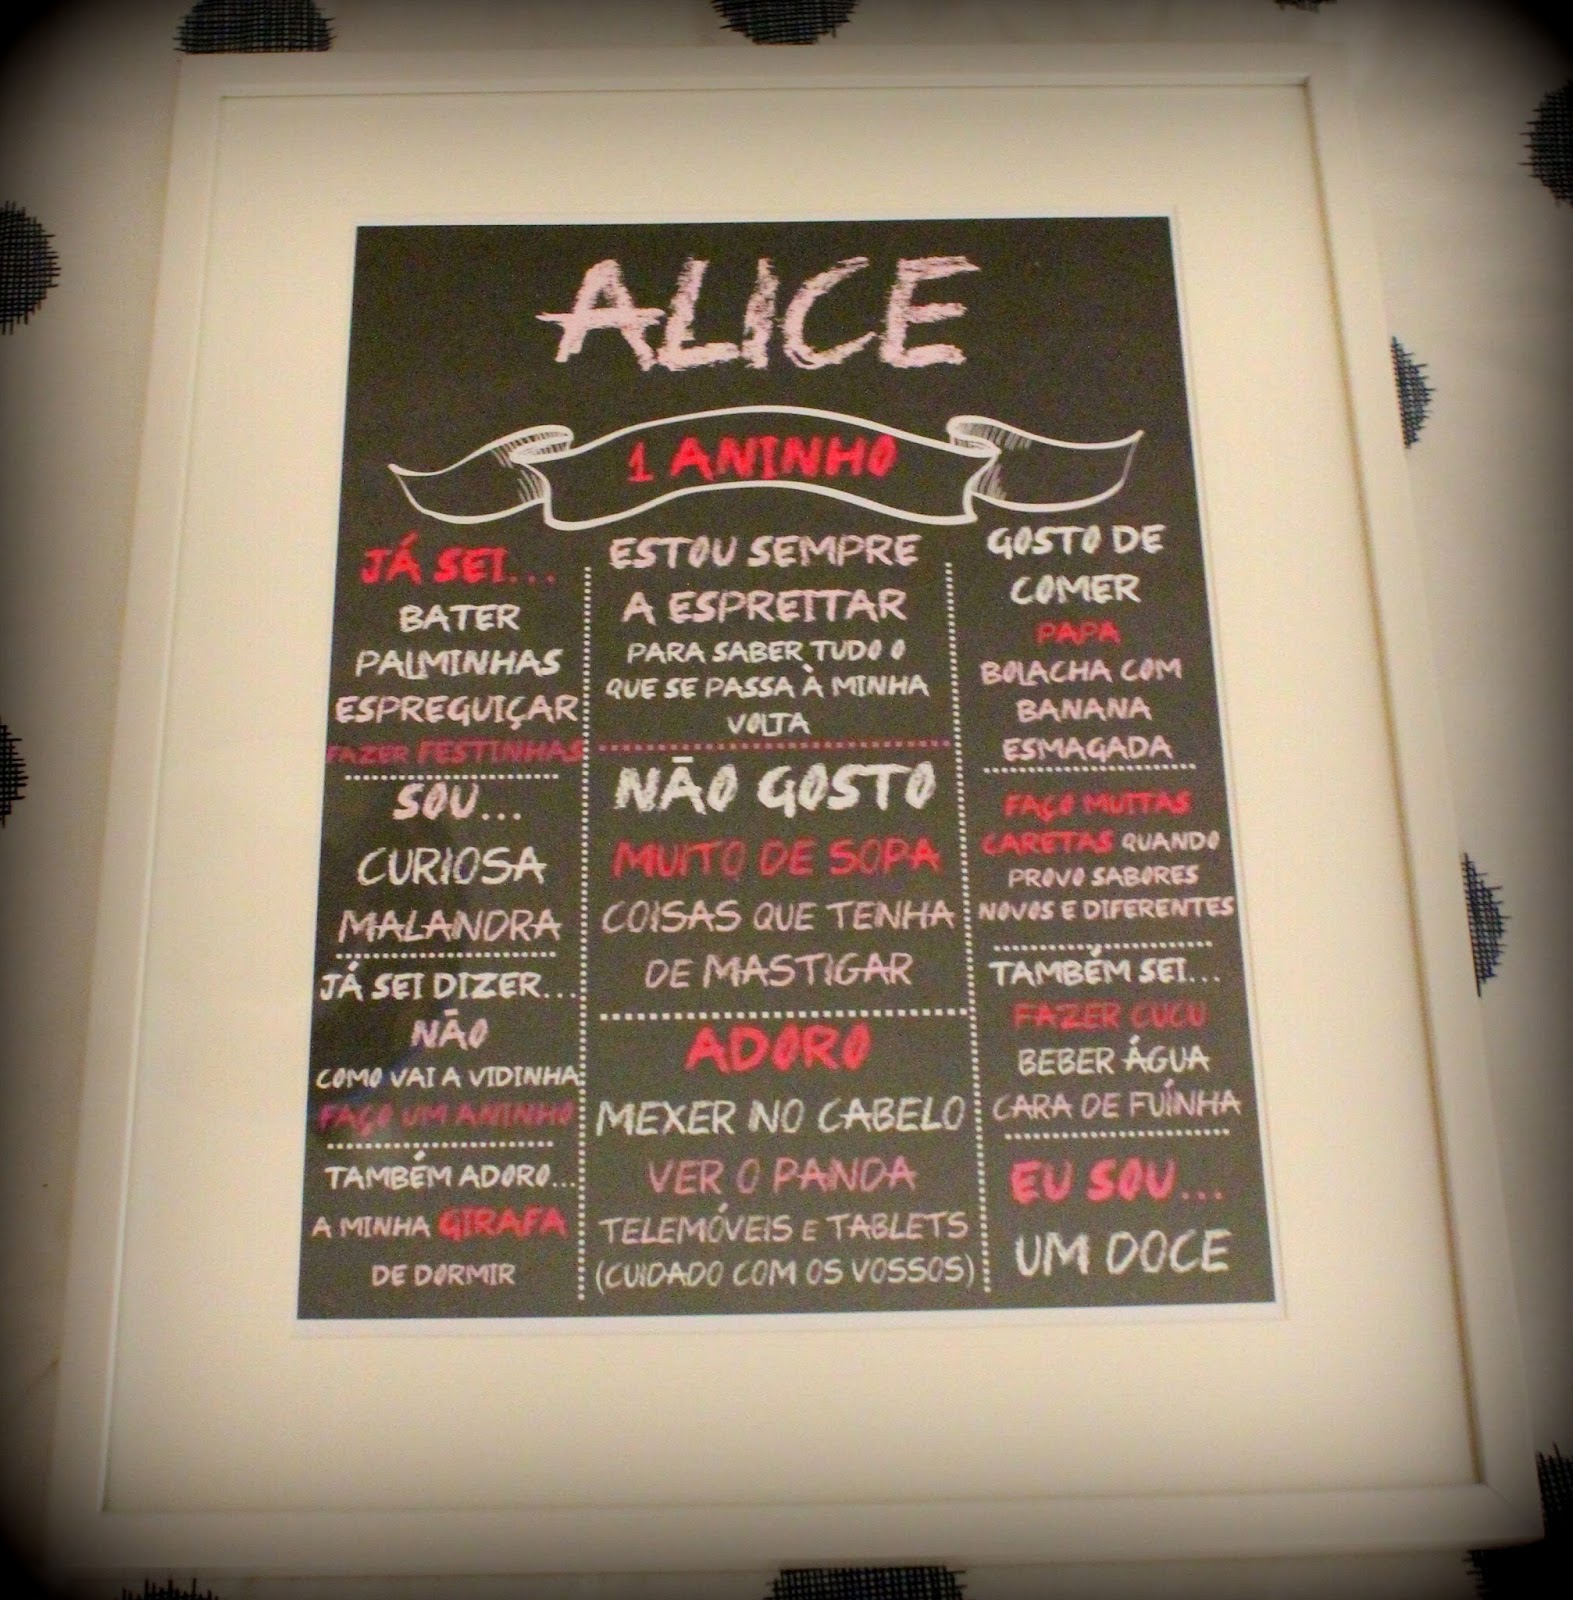 ALICE
1 ANINHO
JÁ SEI...
BATER
PALMINHAS
ESPREGUIÇAR
FAZER FESTINHAS
SOU...
CURIOSA
MALANDRA
JÁ SEI DIZER...
NÃO
COMO VAI A VIDINHA
FAÇO UM ANINHO
TAMBÉM ADORO...
A MINHA GIRAFA
DE DORMIR
ESTOU SEMPRE
A ESPREITAR
PARA SABER TUDO O
QUE SE PASSA À MINHA
VOLTA
NÃO GOSTO
MUITO DE SOPA
COISAS QUE TENHA
DE MASTIGAR
ADORO
MEXER NO CABELO
VER O PANDA
TELEMÓVEIS E TABLETS
(CUIDADO COM OS VOSSOS)
GOSTO DE
COMER
PAPA
BOLACHA COM
BANANA
ESMAGADA
FAÇO MUITAS
CARETAS QUANDO
PROVO SABORES
NOVOS E DIFERENTES
TAMBÉM SEI...
FAZER CUCU
BEBER ÁGUA
CARA DE FUÍNHA
EU SOU...
UM DOCE